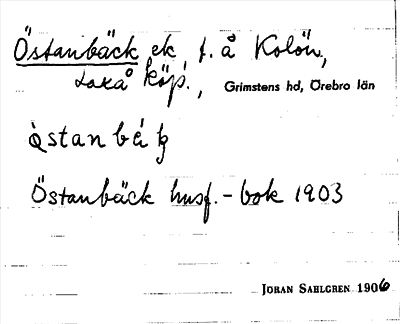 Östanbäck ek, t. å Kolön,
Laxå köp., Grimstens hd, Örebro län
Östanbäck husf.-bok 1903
JÖRAN SAHLGREN 1906